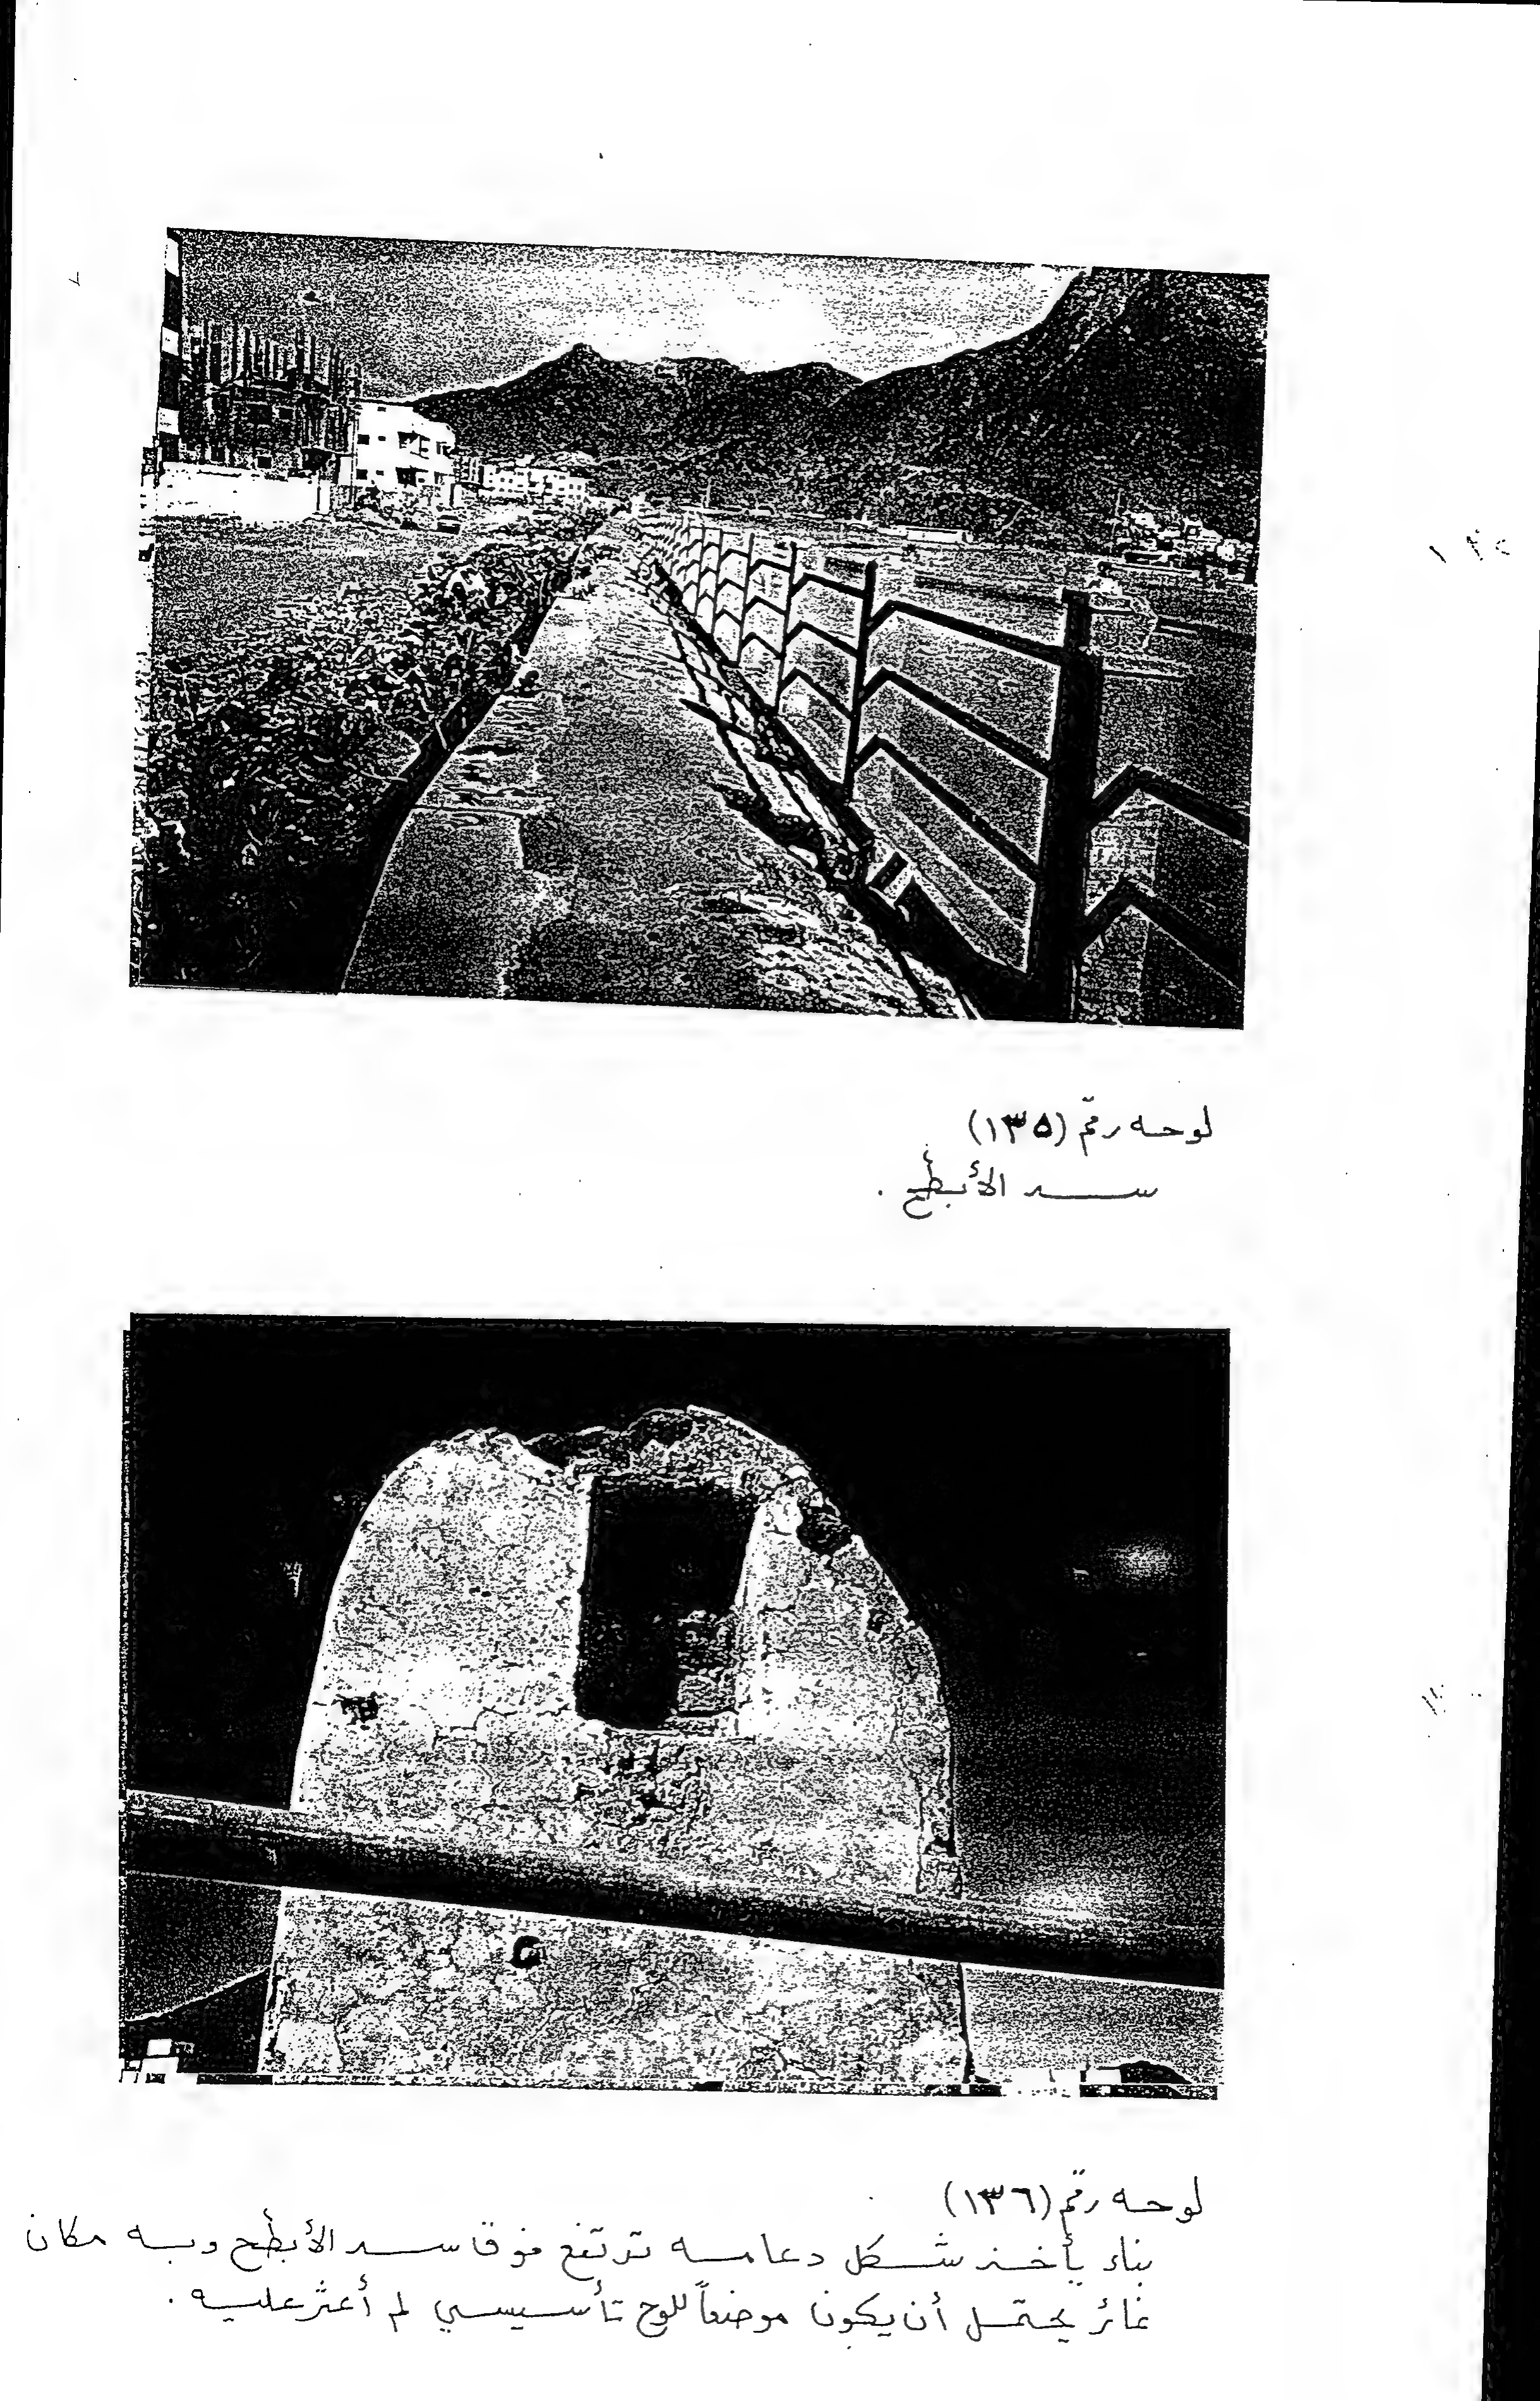 لوحه رقم (١٣٥)
سد الأبطح .
لوحه رقم (١٣٦)
بناء يأخذ شكل دعامه ترتفع فوق سد الأبطح وبه مكان
غائر يحتمل أن يكون موضعاً للوح تأسيسي لم أعثر عليه .